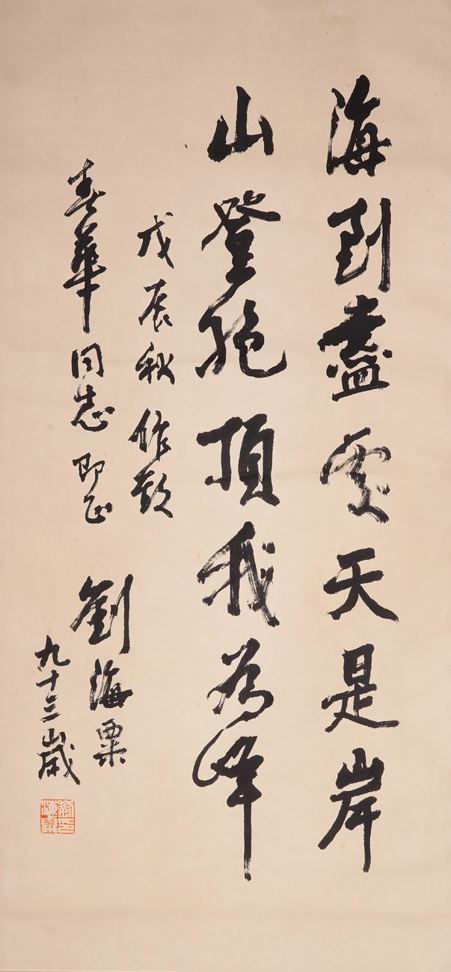 海到盡處天是岸
山登絶頂我為峰
戊辰秋
春華同志即正
劉海粟
九十三歲